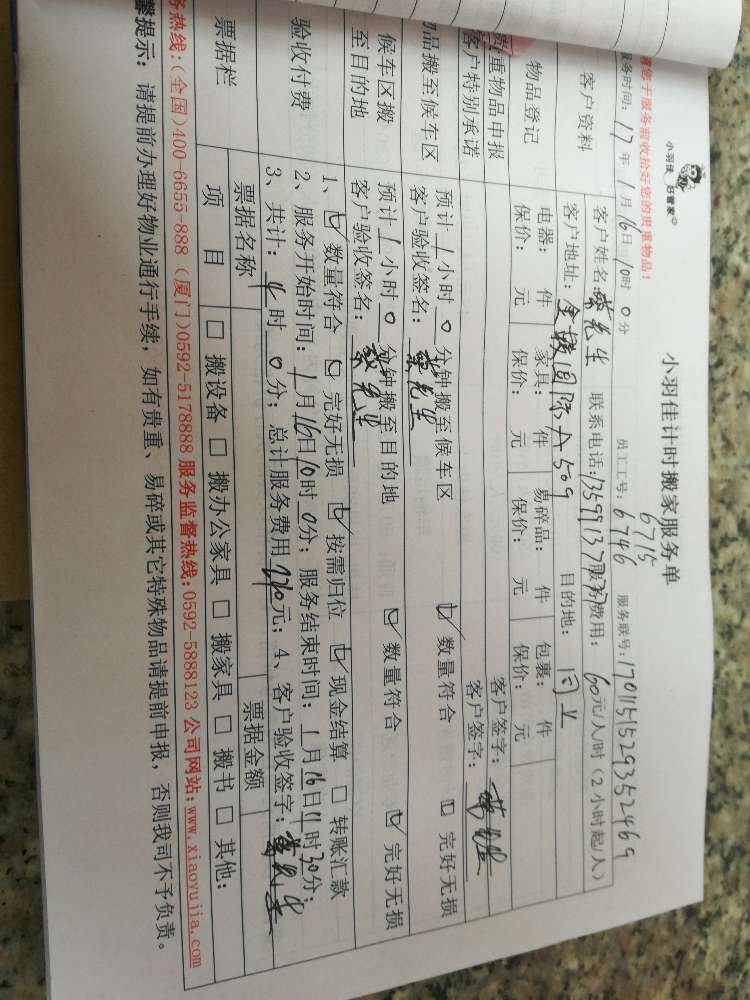 小羽佳 好管家
小羽佳计时搬家服务单
您于服务前收拾好您的贵重物品!
6715
服务时间: 17年 1月 16日 10时 0分 员工工号: 6746 服务联号: 170115152935246
客户资料
客户姓名: 先生 联系电话: 服务费用: 60元/人/时 (2小时起/人)
客户地址: 国际A509 目的地: 同上
物品登记
电器: 件 家具: 件 易碎品: 件 包裹: 件
保价: 元 保价: 元 保价: 元 保价: 元
贵重物品申报 客户签字:
客户特别承诺 客户签字:
物品搬至候车区
预计 1小时 0分钟搬至候车区 数量符合 完好无损
客户验收签名: 先生
候车区搬至目的地
预计 1小时 0分钟搬至目的地 数量符合 完好无损
客户验收签名: 先生
验收付费
1、数量符合 完好无损 按需归位 现金结算 转账汇款
2、服务开始时间: 1月16日10时 0分; 服务结束时间: 1月16日11时30分;
3、共计: 4时 0分; 总计服务费用 元; 4、客户验收签字:
票据栏
票据名称 票据金额
项 目 搬设备 搬办公家具 搬家具 搬书 其他:
务热线:(全国)400-6655-888 (厦门)0592-5178888 服务监督热线:0592-5888123 公司网站:www.xiaoyujia.com
馨提示: 请提前办理好物业通行手续, 如有贵重、易碎或其它特殊物品请提前申报, 否则我司不予负责。